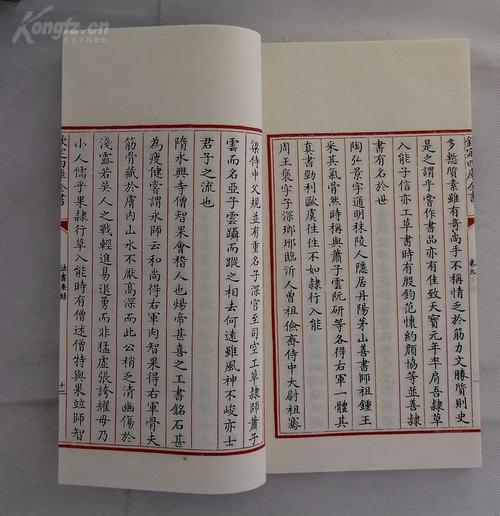 Kongfz.cn
欽定四庫全書
卷九
多慙質素雖有奇尚手不稱情乏於筋力文勝質則史
是之謂乎嘗作書品亦有佳致天寶元年卒肩吾隸草
入能子信亦工草書時有殷鈞范懷約顏協等並善隸
書有名於世
陶弘景字通明秣陵人隱居丹陽茅山善書師祖鍾王
采其氣骨然時稱與蕭子雲阮研等各得右軍一體其
真書勁利歐虞往往不如隸行入能
周王褒字子深瑯瑯臨沂人曾祖儉齊侍中大尉祖騫
梁侍中父規並有重名子深官至司空工草隸師蕭子
雲而名亞子雲躡而蹤之相去何遠雖風神不峻亦士
君子之流也
隋永興寺僧智果會稽人也煬帝甚善之工書銘石甚
為瘦健嘗謂永師云和尚得右軍肉智果得右軍骨夫
筋骨藏於膚內山水不厭高深而此公稍乏清幽傷於
淺露若吳人之戰輕進易退勇而非猛虛張誇耀毋乃
小人儒乎果隸行草入能時有僧述僧特與果並師智
欽定四庫全書
法書要錄
十二